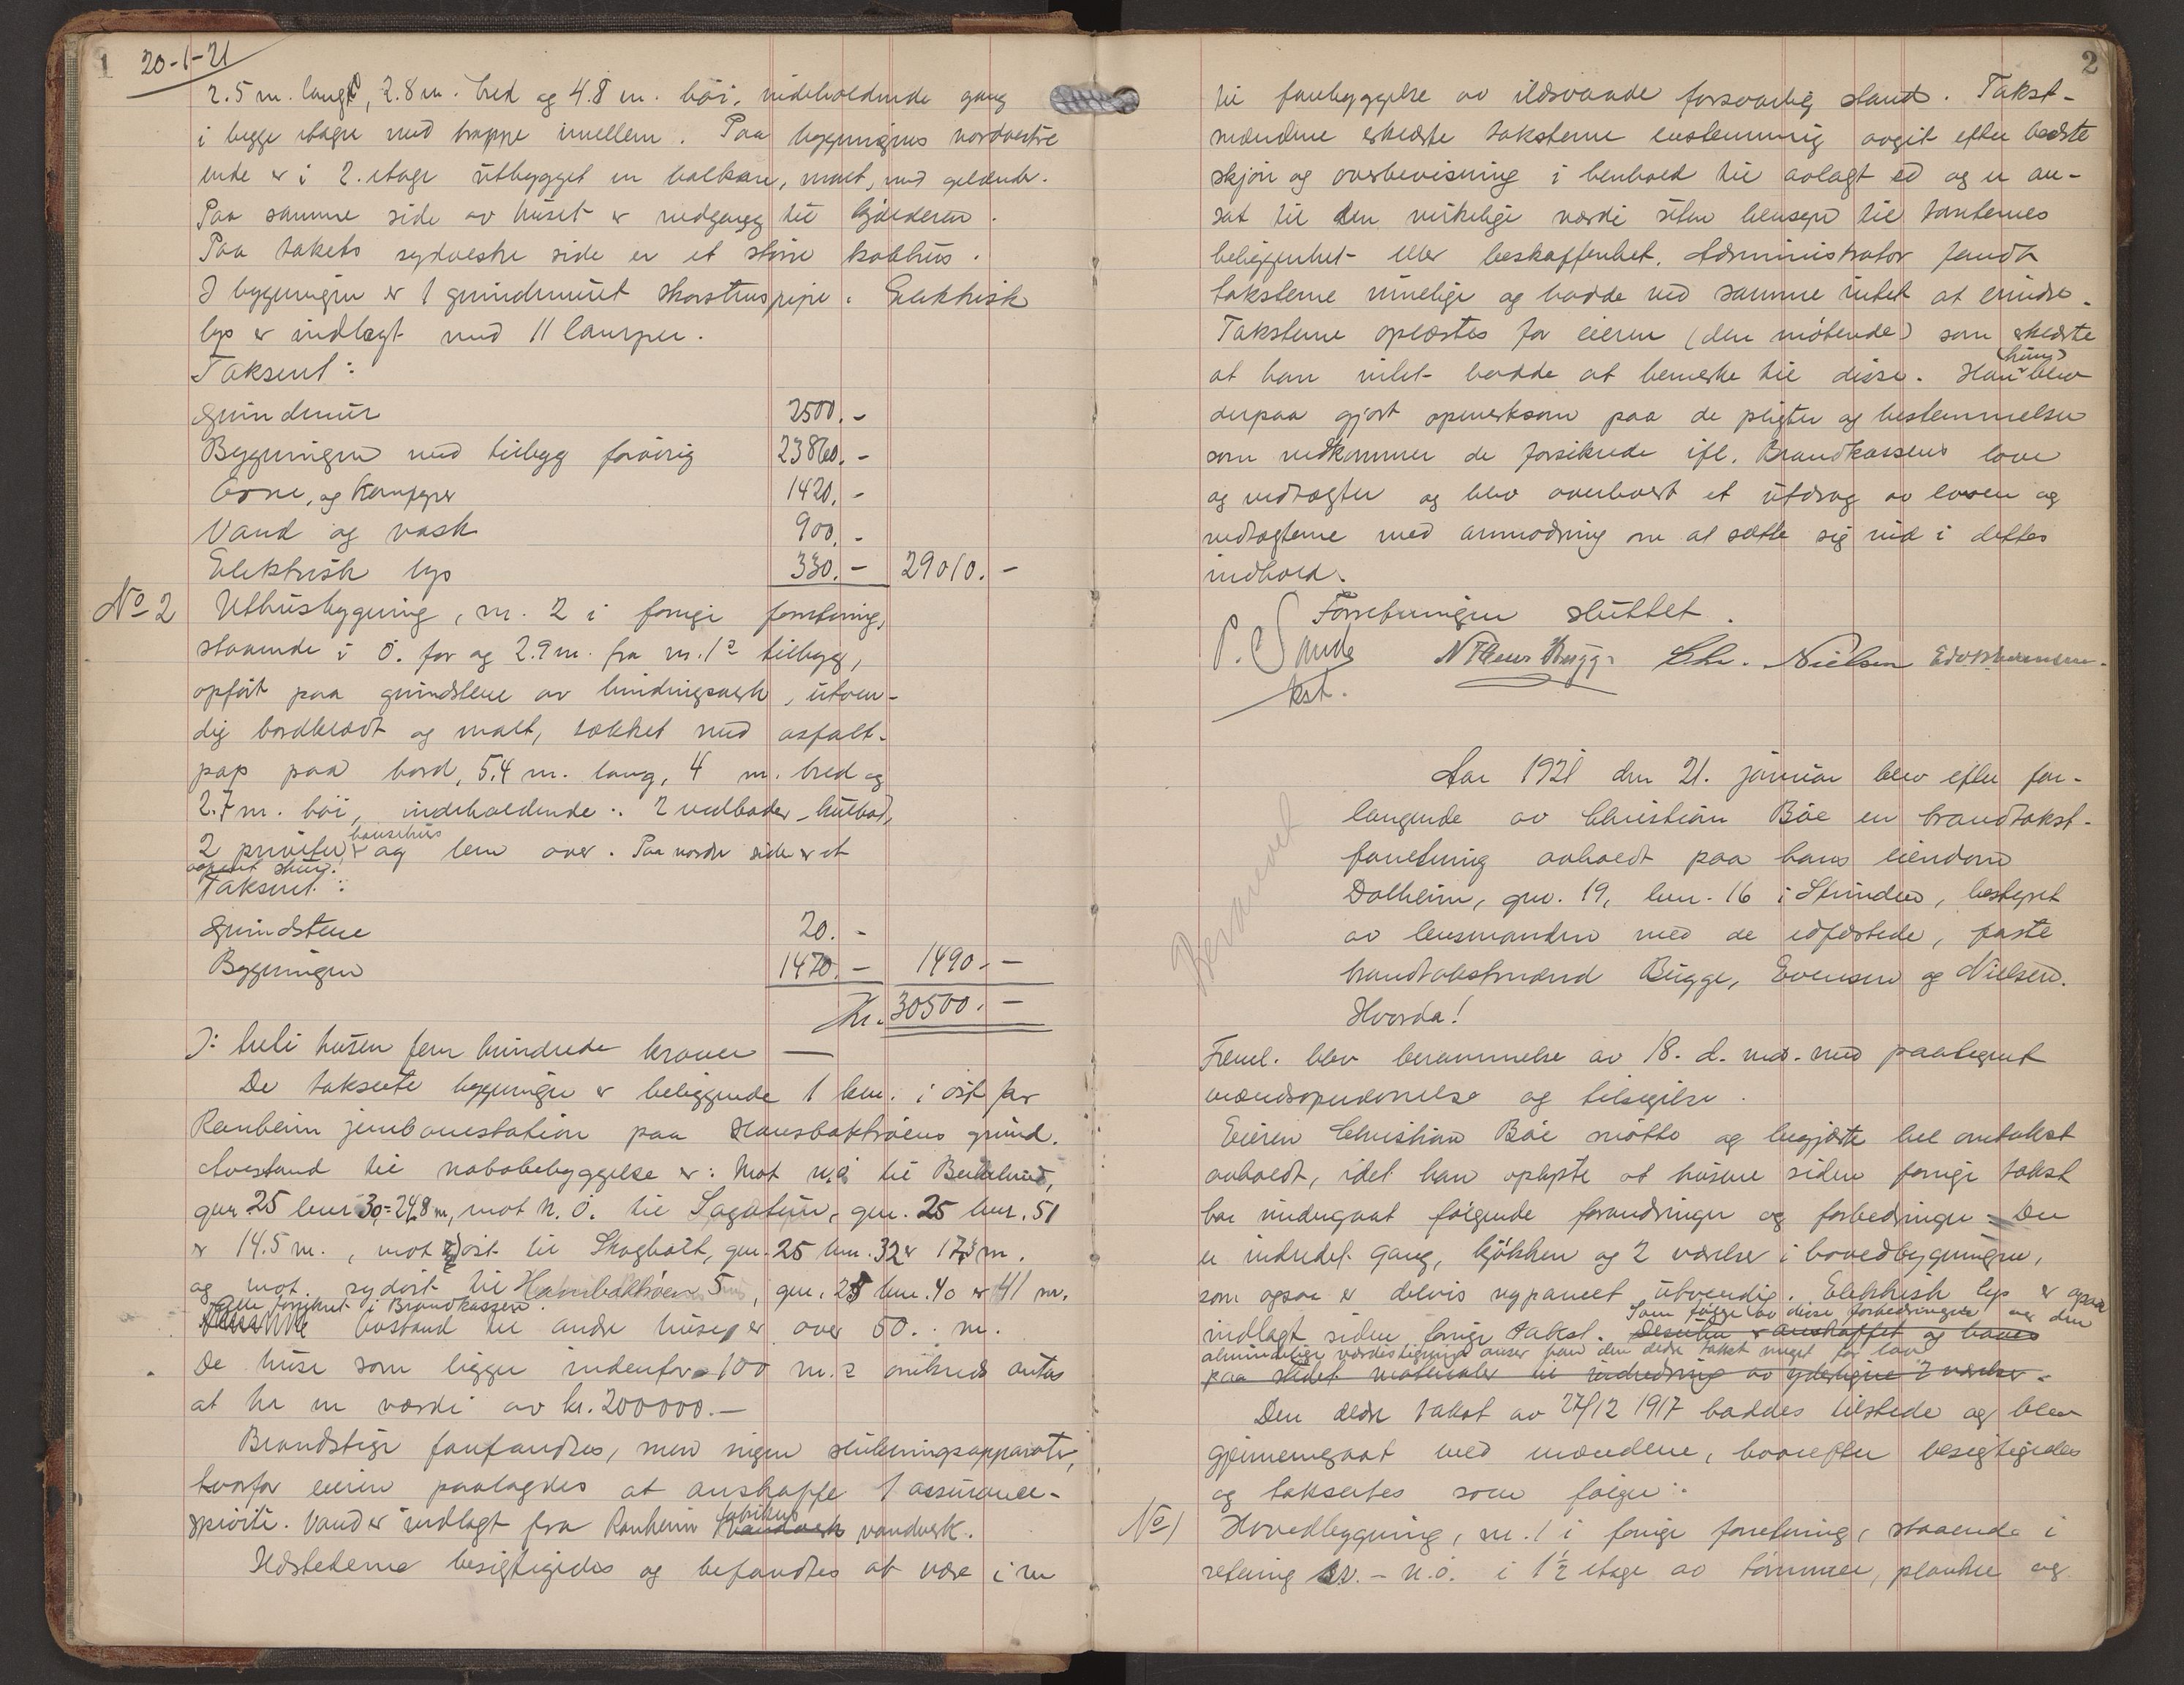 1
20-1-21
2.5 m. langt, 2.8 m. bred og 4.8 m. høi, indeholdende gang
i begge etager med trappe imellem. Paa bygningens nordvestre
ende er i 2. etage utbygget en balkon, malt, med gelænder.
Paa samme side av huset er nedgang til kjælderen.
Paa takets sydvestre side er et større takhus.
I bygningen er 1 grundmuret skorstenspipe. Elektrisk
lys er indlagt med 11 lamper.
Taksert:
Grundmur 2500.-
Bygningen med tilbygg forøvrig 23860.-
Ovne, og Kamper 1420.-
Vand og vask 900.-
Elektrisk lys 330.- 29010.-
No 2 Uthusbygning, nr. 2 i forrige forretning,
staaende i ø. for og 2.9 m. fra nr. 1s tilbygg,
opført paa grundstene av bindingsverk, utven-
dig bordklædt og malt, tækket med asfalt-
pap paa bord, 5.4 m. lang, 4 m. bred og
2.7 m. høi, indeholdende: 2 vedboder, kulbod,
hønsehus
2 priveter, og lem over. Paa nordre side er et
aapent skur.
Taksert:
Grundstene 20.-
Bygningen 1470.- 1490.-
Kr. 30500.-
ɔ: treti tusen fem hundrede kroner —
De takserte bygninger er beliggende 1 km. i øst for
Ranheim jernbanestation paa Hansbakhrøens grund.
Avstand til nabobebyggelse er: Mot n.ø til
gnr 25 bnr 30 = 24.8 m, mot n.ø. til Sagatun, gnr. 25 bnr. 51
er 14.5 m., mot øst til Skogholt, gnr. 25 bnr. 32 er 17.3 m.
og mot sydøst til Hansbakhrøen 5, gnr. 25 bnr. 40 er 41 m.
Alle forsikret i Brandkassen.
Avstand til andre huser er over 50. m.
De huse som ligger indenfor 100 m.s omkreds antas
at ha en værdi av kr. 200000.-
Brandstige forefandtes, men ingen slukningsapparater,
hvorfor eieren paalagdes at anskaffe 1 assurance-
fabrikks
sprøite. Vand er indlagt fra Ranheim vandverk vandverk.
Ildstederne besigtigedes og befandtes at være i en
2
til forebyggelse av ildsvaade forsvarlig stand. Takst-
mændene erklærte taksterne enstemmig avgit efter bedste
skjøn og overbevisning i henhold til avlagt ed og er an-
sat til den virkelige værdi uten hensyn til tomternes
beliggenhet eller beskaffenhet. Administrator fandt
taksterne rimelige og hadde ved samme intet at erindre.
Taksterne oplæstes for eieren (den møtende) som erklærte
(hun)
at han intet hadde at bemerke til disse. Han blev
derpaa gjort opmerksom paa de pligter og bestemmelser
som vedkommer de forsikrede ifl. Brandkassens love
og vedtægter og blev overlevert et utdrag av loven og
vedtægterne med anmodning om at sætte sig ind i dettes
indhold.
Forretningen sluttet.
P. Sande N Bugge Chr. Nielsen Edv
kst.
Aar 1921 den 21. januar blev efter for-
langende av Christian Bøe en brandtakst-
forretning avholdt paa hans eiendom
Dalheim, gnr. 19, bnr. 16 i Strinden, bestyret
av lensmanden med de edfæstede, faste
brandtakstmænd Bugge, Evensen og Nielsen.
Hvorda!
Freml. blev berammelse av 18. d. md. med paategnet
mændsopnævnelse og tilsigelse.
Eieren Christian Bøe møtte og begjærte hel omtakst
avholdt, idet han oplyste at husene siden forrige takst
har undergaat følgende forandringer og forbedringer: Der
er indredet gang, kjøkken og 2 værelser i hovedbygningen,
som ogsaa er delvis nypanelt utvendig. Elektrisk lys er ogsaa
Som følge av disse forbedringer og den
indlagt siden forrige takst. Desuten er anskaffet og haves
almindelige værdistigning anser han den ældre takst meget for lav
paa stedet materialer til indredning av yderligere 2 værelser.
Den ældre takst av 27/12 1917 haddes tilstede og blev
gjennemgaat med mændene, hvorefter besigtigedes
og taksertes som følger:
No 1 Hovedbygning, nr. 1 i forrige forretning, staaende i
retning sv. - n.ø. i 1½ etage av tømmer, planker og